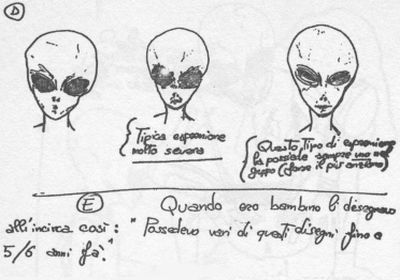 D
Tipica espressione
molto severa
Questo tipo di espressione
la possiede sempre uno nel
gruppo (forse il più anziano)
E Quando ero bambino li disegnavo
all'incirca così: "Possedevo vari di questi disegni fino a
5/6 anni fà."